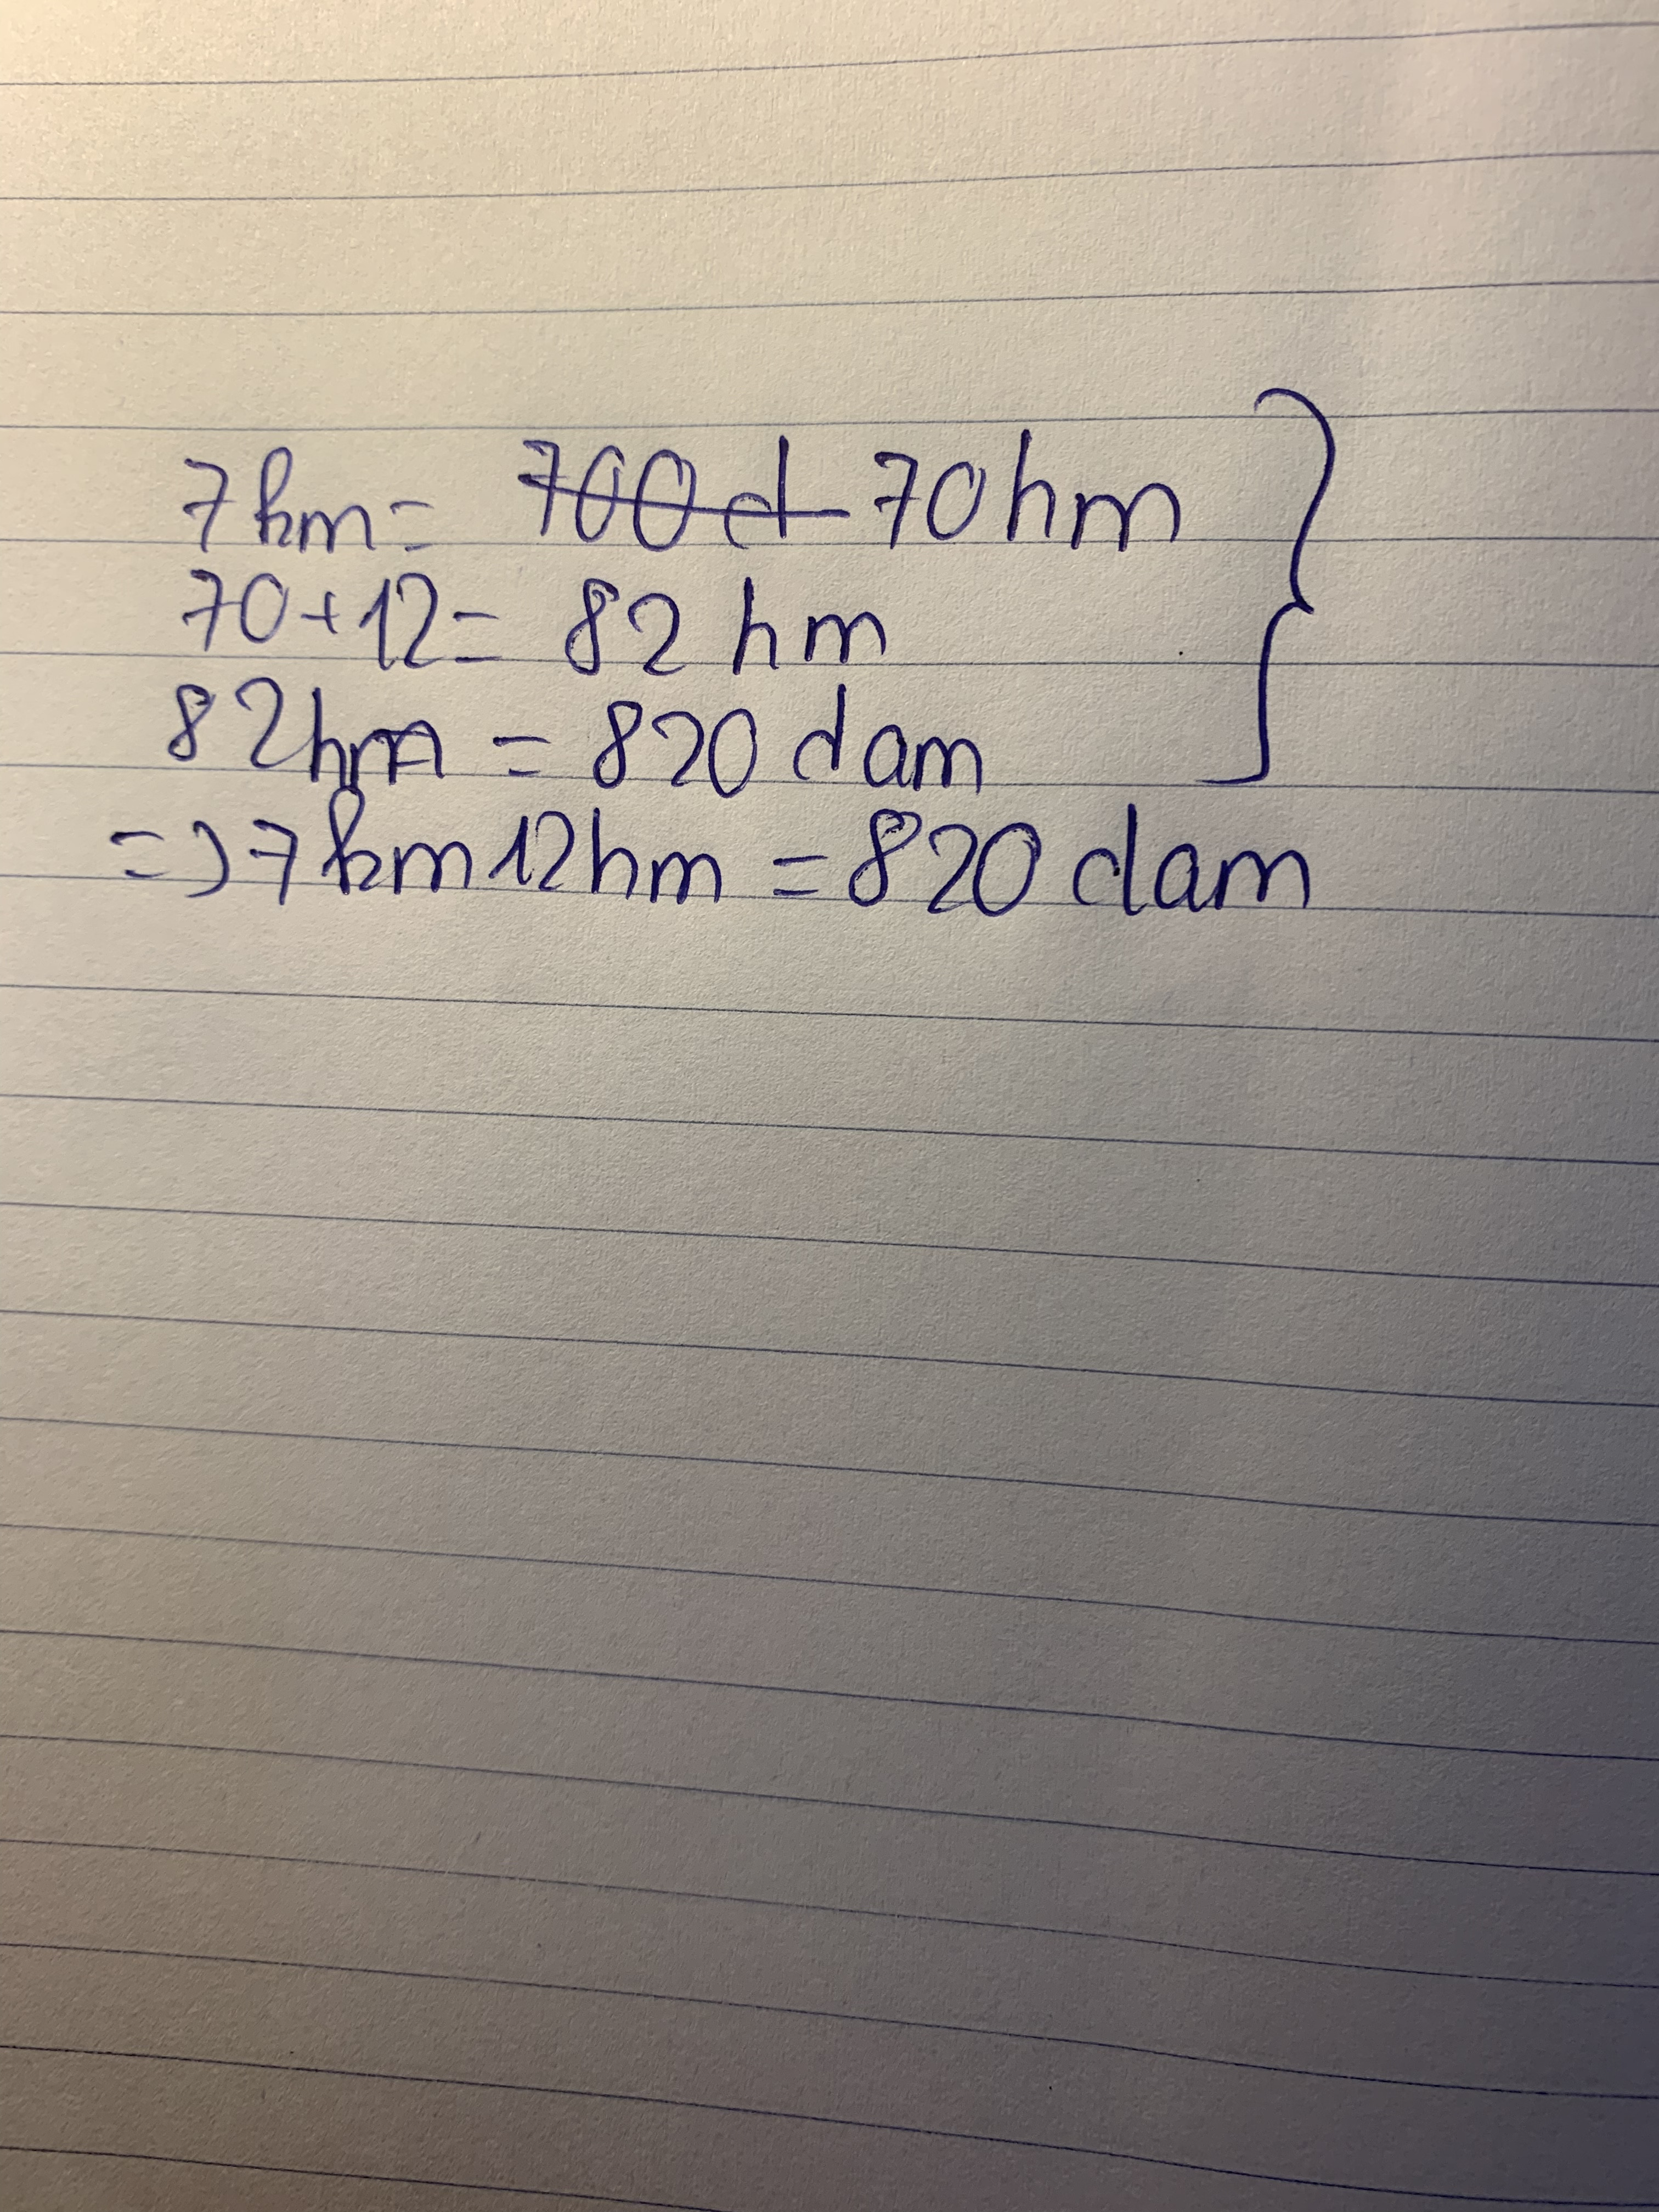 7km= 700d 70hm
70+12= 82 hm
82hm = 820 dam
=> 7km 12hm = 820 dam